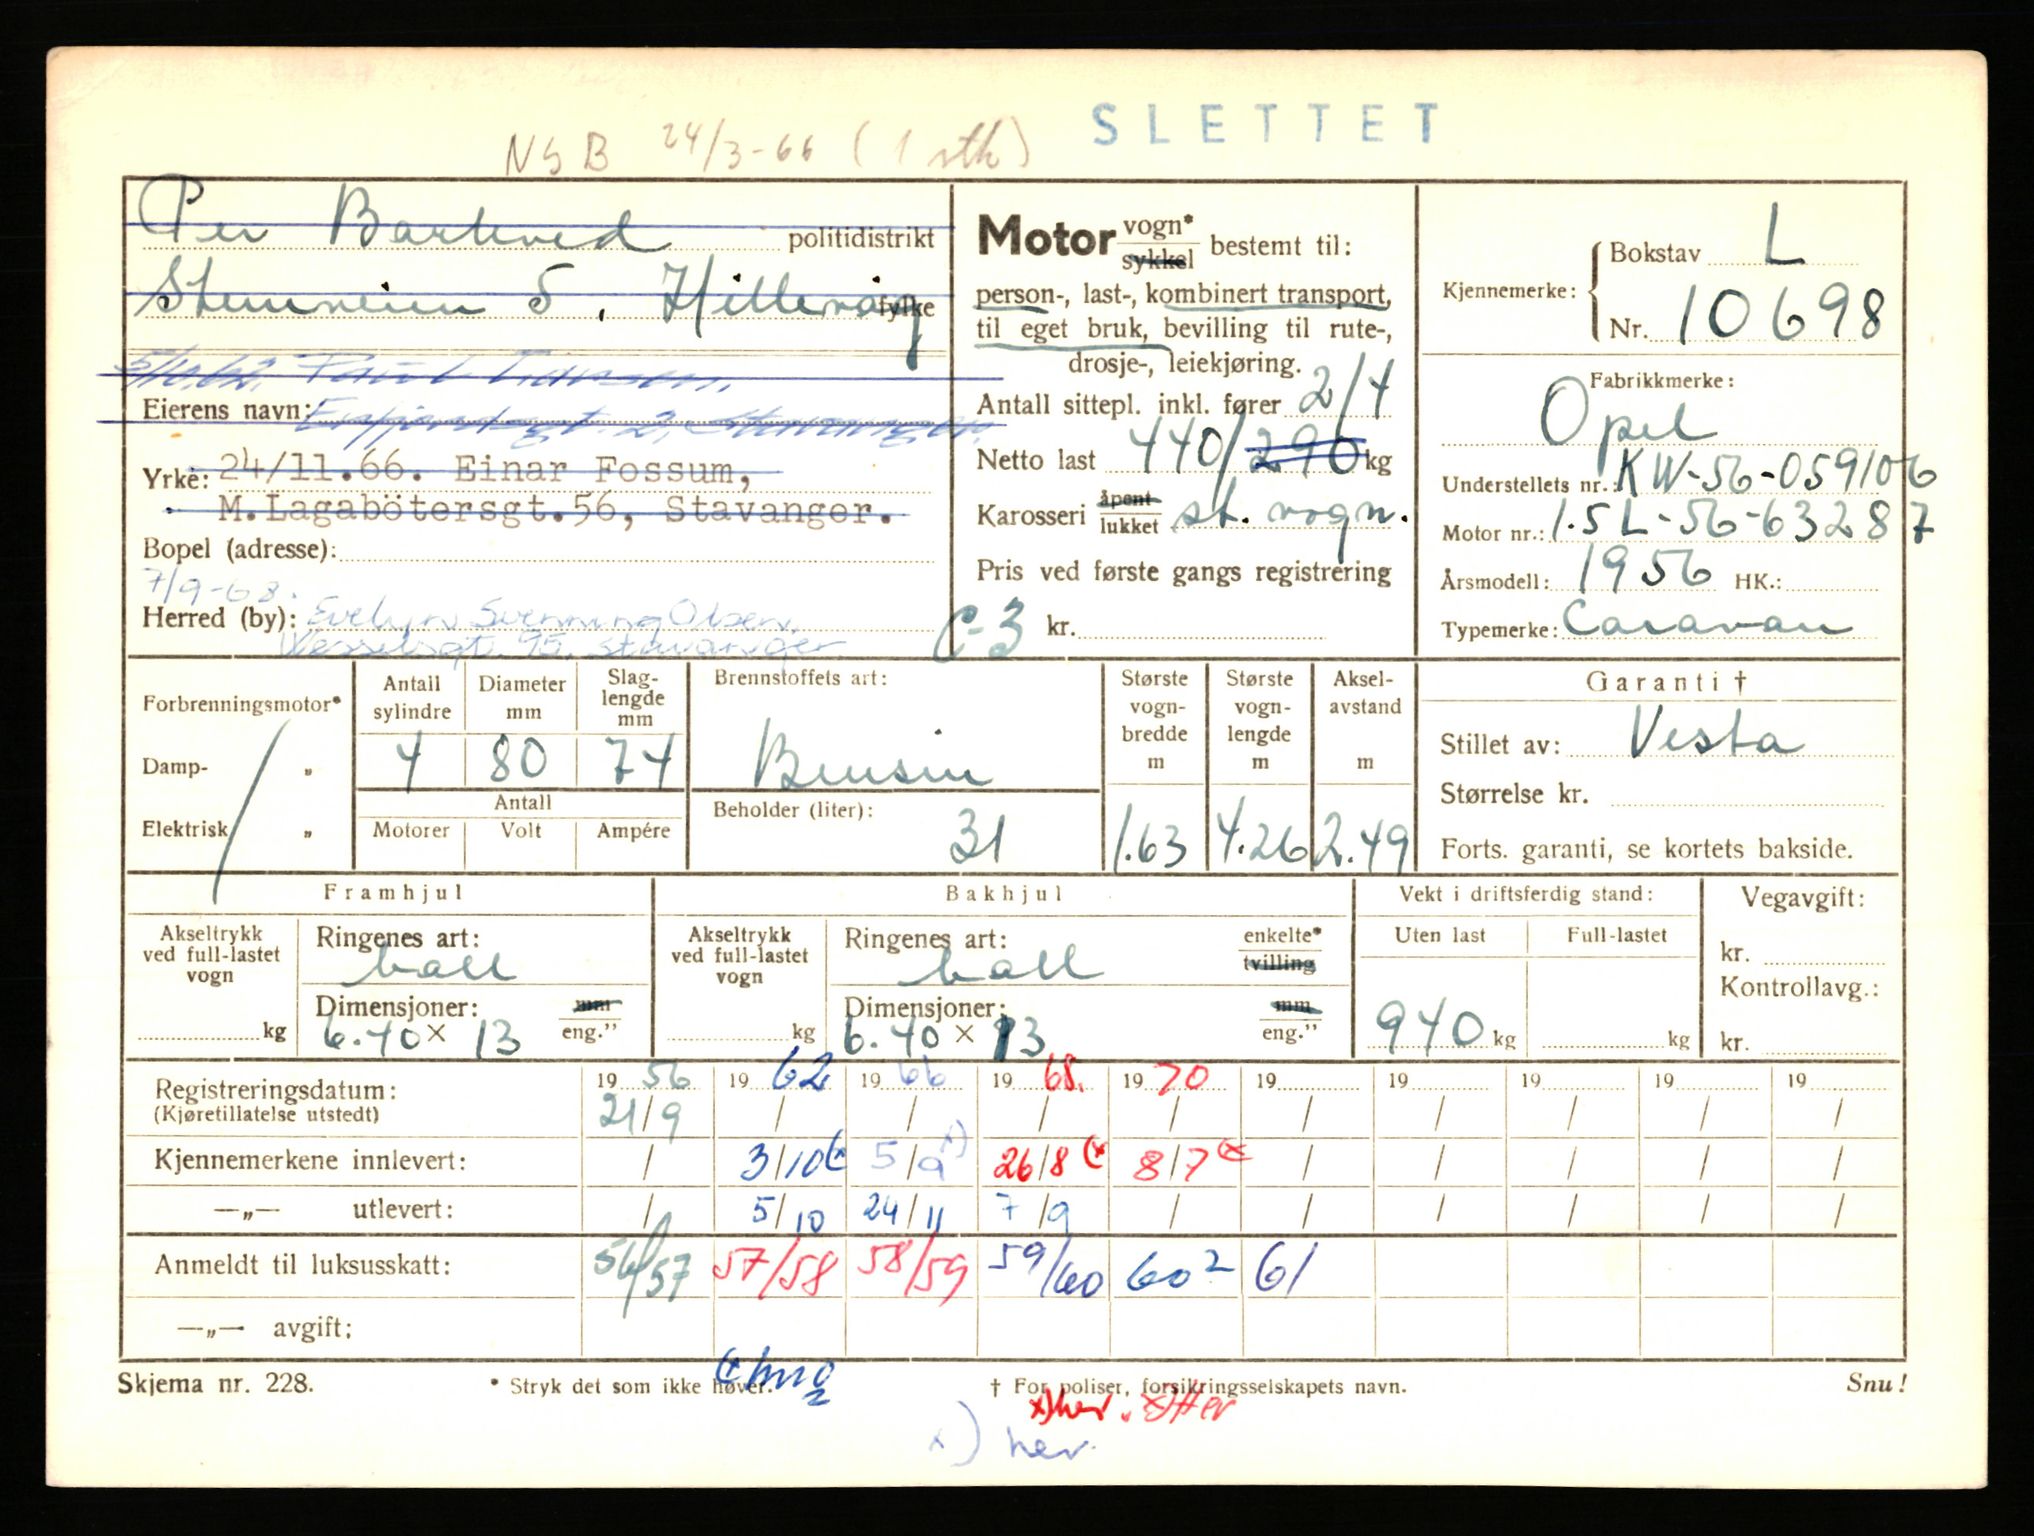 SLETTET
NSB 24/3-66 (1 stk)
Per Barkved politidistrikt
5, Hillevåg fylke
5/10.62.
Eierens navn:
Yrke: 24/11.66. Einar Fossum,
M.Lagabötersgt.56, Stavanger.
Bopel (adresse):
7/9-68.
Herred (by): Evelyn Svenning Olsen,
Wesselsgt. 95, Stavanger
Motor vogn* sykkel bestemt til:
person-, last-, kombinert transport,
til eget bruk, bevilling til rute-,
drosje-, leiekjøring.
Antall sittepl. inkl. fører 2/4
Netto last 440/290 kg
Karosseri åpent lukket st. vogn.
Pris ved første gangs registrering
C-3 kr.
Kjennemerke: Bokstav L
Nr. 10698
Fabrikkmerke:
Opel
Understellets nr.: KW-56-059106
Motor nr.: 1.5L-56-63287
Årsmodell: 1956 HK.:
Typemerke: Caravan
Forbrenningsmotor*
Damp- „
Elektrisk „
Antall sylindre Diameter mm Slag-lengde mm
4 80 74
Antall
Motorer Volt Ampére
Brennstoffets art:
Bensin
Beholder (liter):
31
Største vogn-bredde m
1.63
Største vogn-lengde m
4.26
Aksel-avstand m
2.49
Garanti †
Stillet av: Vesta
Størrelse kr.
Forts. garanti, se kortets bakside.
Framhjul
Akseltrykk ved full-lastet vogn
kg
Ringenes art:
ball
Dimensjoner: mm
6.40 x 13 eng.”
Bakhjul
Akseltrykk ved full-lastet vogn
kg
Ringenes art: enkelte*
ball tvilling
Dimensjoner: mm
6.40 x 13 eng.”
Vekt i driftsferdig stand:
Uten last Full-lastet
940 kg kg
Vegavgift:
kr.
Kontrollavg.:
kr.
Registreringsdatum: 19 56 19 62 19 66 19 68. 19 70 19 19 19 19 19
(Kjøretillatelse utstedt) 21/9 / / / / / / / / /
Kjennemerkene innlevert: / 3/10 (x 5/9 x) 26/8 (x 8/7 (x / / / / /
—„— utlevert: / 5/10 24/11 7/9 / / / / / /
Anmeldt til luksusskatt: 56/57 57/58 58/59 59/60 60² 61
—„— avgift:
Skjema nr. 228. * Stryk det som ikke høver. † For poliser, forsikringsselskapets navn. Snu!
x) her. x) Her
x) her.